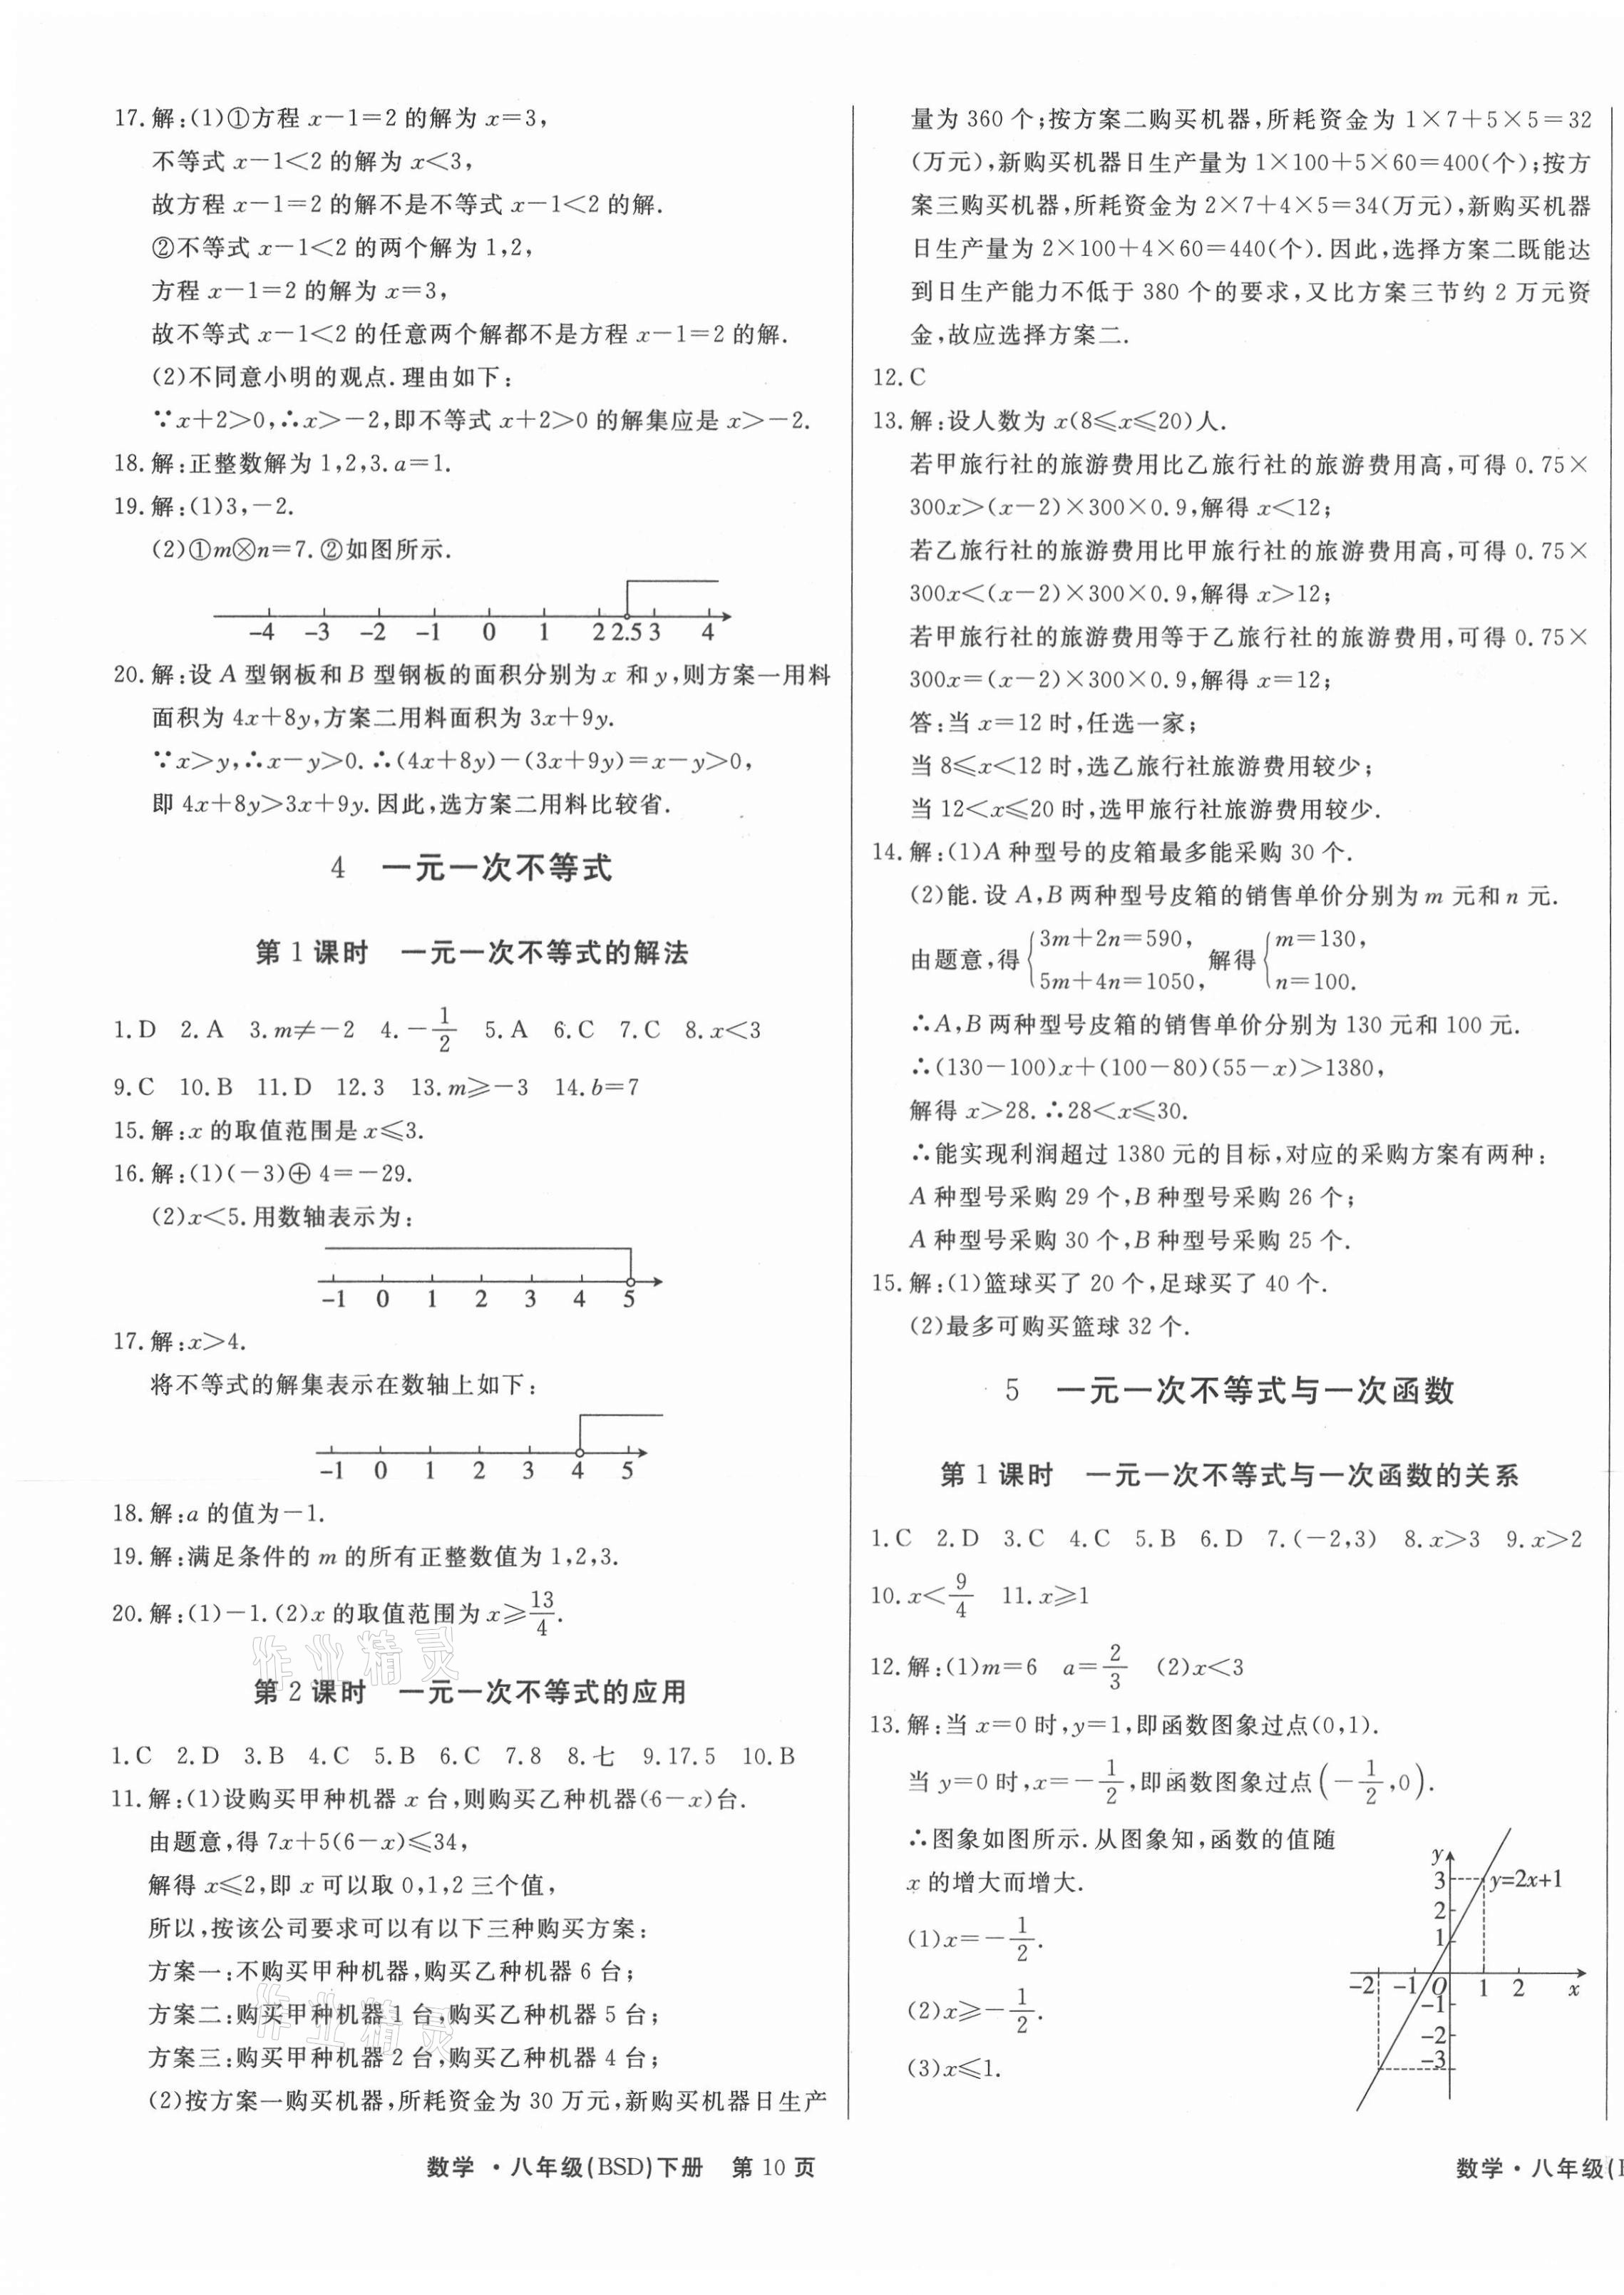 17.解:(1)①方程 x-1=2 的解为 x=3,
不等式 x-1<2 的解为 x<3,
故方程 x-1=2 的解不是不等式 x-1<2 的解.
②不等式 x-1<2 的两个解为 1,2,
方程 x-1=2 的解为 x=3,
故不等式 x-1<2 的任意两个解都不是方程 x-1=2 的解.
(2)不同意小明的观点.理由如下:
∵x+2>0,∴x>-2,即不等式 x+2>0 的解集应是 x>-2.
18.解:正整数解为 1,2,3.a=1.
19.解:(1)3,-2.
(2)①m⊗n=7.②如图所示.
-4 -3 -2 -1 0 1 2 2.5 3 4
20.解:设 A 型钢板和 B 型钢板的面积分别为 x 和 y,则方案一用料
面积为 4x+8y,方案二用料面积为 3x+9y.
∵x>y,∴x-y>0.∴(4x+8y)-(3x+9y)=x-y>0,
即 4x+8y>3x+9y.因此,选方案二用料比较省.
4 一元一次不等式
第 1 课时 一元一次不等式的解法
1.D 2.A 3.m≠-2 4.-1/2 5.A 6.C 7.C 8.x<3
9.C 10.B 11.D 12.3 13.m≥-3 14.b=7
15.解:x 的取值范围是 x≤3.
16.解:(1)(-3)⊕4=-29.
(2)x<5.用数轴表示为:
-1 0 1 2 3 4 5
17.解:x>4.
将不等式的解集表示在数轴上如下:
-1 0 1 2 3 4 5
18.解:a 的值为-1.
19.解:满足条件的 m 的所有正整数值为 1,2,3.
20.解:(1)-1.(2)x 的取值范围为 x≥13/4.
作业精灵
第 2 课时 一元一次不等式的应用
1.C 2.D 3.B 4.C 5.B 6.C 7.8 8.七 9.17.5 10.B
11.解:(1)设购买甲种机器 x 台,则购买乙种机器(6-x)台.
由题意,得 7x+5(6-x)≤34,
解得 x≤2,即 x 可以取 0,1,2 三个值,
所以,按该公司要求可以有以下三种购买方案:
方案一:不购买甲种机器,购买乙种机器 6 台;
方案二:购买甲种机器 1 台,购买乙种机器 5 台;
作业精灵
方案三:购买甲种机器 2 台,购买乙种机器 4 台;
(2)按方案一购买机器,所耗资金为 30 万元,新购买机器日生产
量为 360 个;按方案二购买机器,所耗资金为 1×7+5×5=32
(万元),新购买机器日生产量为 1×100+5×60=400(个);按方
案三购买机器,所耗资金为 2×7+4×5=34(万元),新购买机器
日生产量为 2×100+4×60=440(个).因此,选择方案二既能达
到日生产能力不低于 380 个的要求,又比方案三节约 2 万元资
金,故应选择方案二.
12.C
13.解:设人数为 x(8≤x≤20)人.
若甲旅行社的旅游费用比乙旅行社的旅游费用高,可得 0.75×
300x>(x-2)×300×0.9,解得 x<12;
若乙旅行社的旅游费用比甲旅行社的旅游费用高,可得 0.75×
300x<(x-2)×300×0.9,解得 x>12;
若甲旅行社的旅游费用等于乙旅行社的旅游费用,可得 0.75×
300x=(x-2)×300×0.9,解得 x=12;
答:当 x=12 时,任选一家;
当 8≤x<12 时,选乙旅行社旅游费用较少;
当 12<x≤20 时,选甲旅行社旅游费用较少.
14.解:(1)A 种型号的皮箱最多能采购 30 个.
(2)能.设 A,B 两种型号皮箱的销售单价分别为 m 元和 n 元.
由题意,得{3m+2n=590, 5m+4n=1050, 解得{m=130, n=100.
∴A,B 两种型号皮箱的销售单价分别为 130 元和 100 元.
∴(130-100)x+(100-80)(55-x)>1380,
解得 x>28.∴28<x≤30.
∴能实现利润超过 1380 元的目标,对应的采购方案有两种:
A 种型号采购 29 个,B 种型号采购 26 个;
A 种型号采购 30 个,B 种型号采购 25 个.
15.解:(1)篮球买了 20 个,足球买了 40 个.
(2)最多可购买篮球 32 个.
5 一元一次不等式与一次函数
第 1 课时 一元一次不等式与一次函数的关系
1.C 2.D 3.C 4.C 5.B 6.D 7.(-2,3) 8.x>3 9.x>2
10.x<9/4 11.x≥1
12.解:(1)m=6 a=2/3 (2)x<3
13.解:当 x=0 时,y=1,即函数图象过点(0,1).
当 y=0 时,x=-1/2,即函数图象过点(-1/2,0).
∴图象如图所示.从图象知,函数的值随
x 的增大而增大.
(1)x=-1/2.
(2)x≥-1/2.
(3)x≤1.
y
3 y=2x+1
2
1
-2 -1 O 1 2 x
-1
-2
-3
数学·八年级(BSD)下册 第 10 页
数学·八年级(